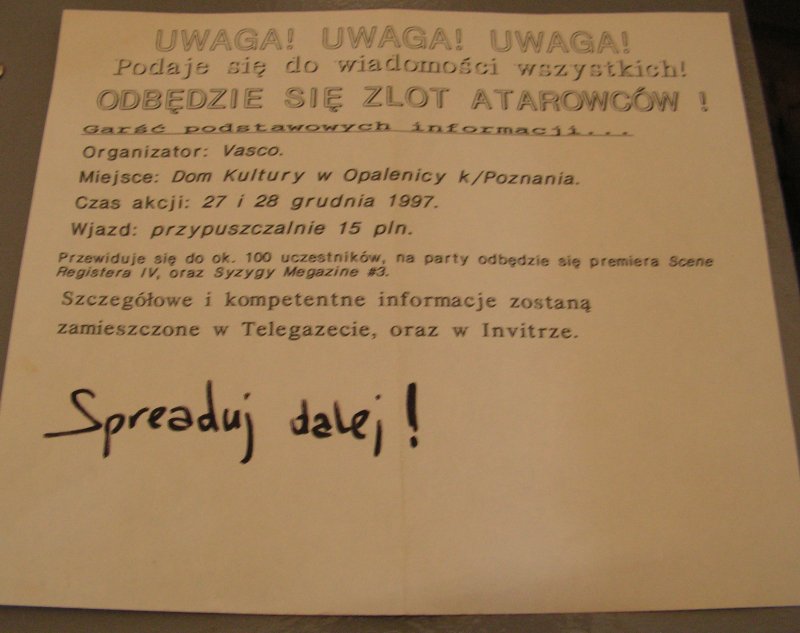 UWAGA! UWAGA! UWAGA!
Podaje się do wiadomości wszystkich!
ODBĘDZIE SIĘ ZLOT ATAROWCÓW !
Garść podstawowych informacji...
Organizator: Vasco.
Miejsce: Dom Kultury w Opalenicy k/Poznania.
Czas akcji: 27 i 28 grudnia 1997.
Wjazd: przypuszczalnie 15 pln.
Przewiduje się do ok. 100 uczestników, na party odbędzie się premiera Scene
Registera IV, oraz Syzygy Megazine #3.
Szczegółowe i kompetentne informacje zostaną
zamieszczone w Telegazecie, oraz w Invitrze.
Spreaduj dalej!